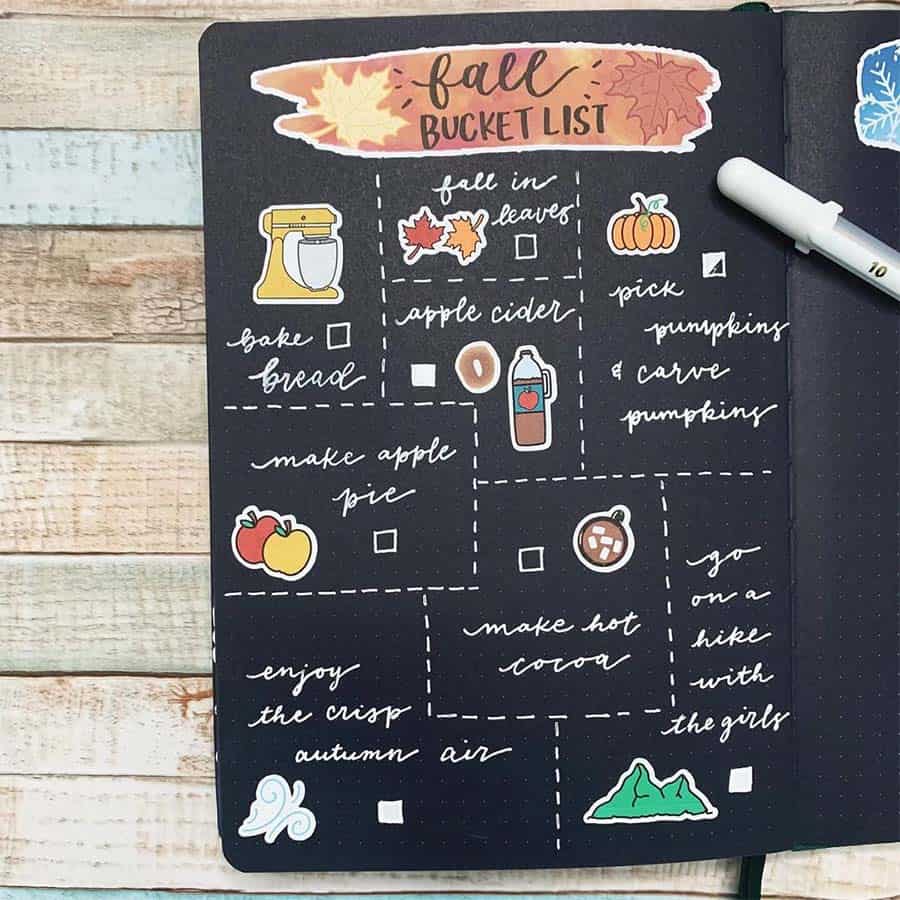 fall
BUCKET LIST
fall in
leaves
bake
bread
apple cider
pick
pumpkins
& carve
pumpkins
make apple
pie
make hot
cocoa
go
on a
hike
with
the girls
enjoy
the crisp
autumn air
10